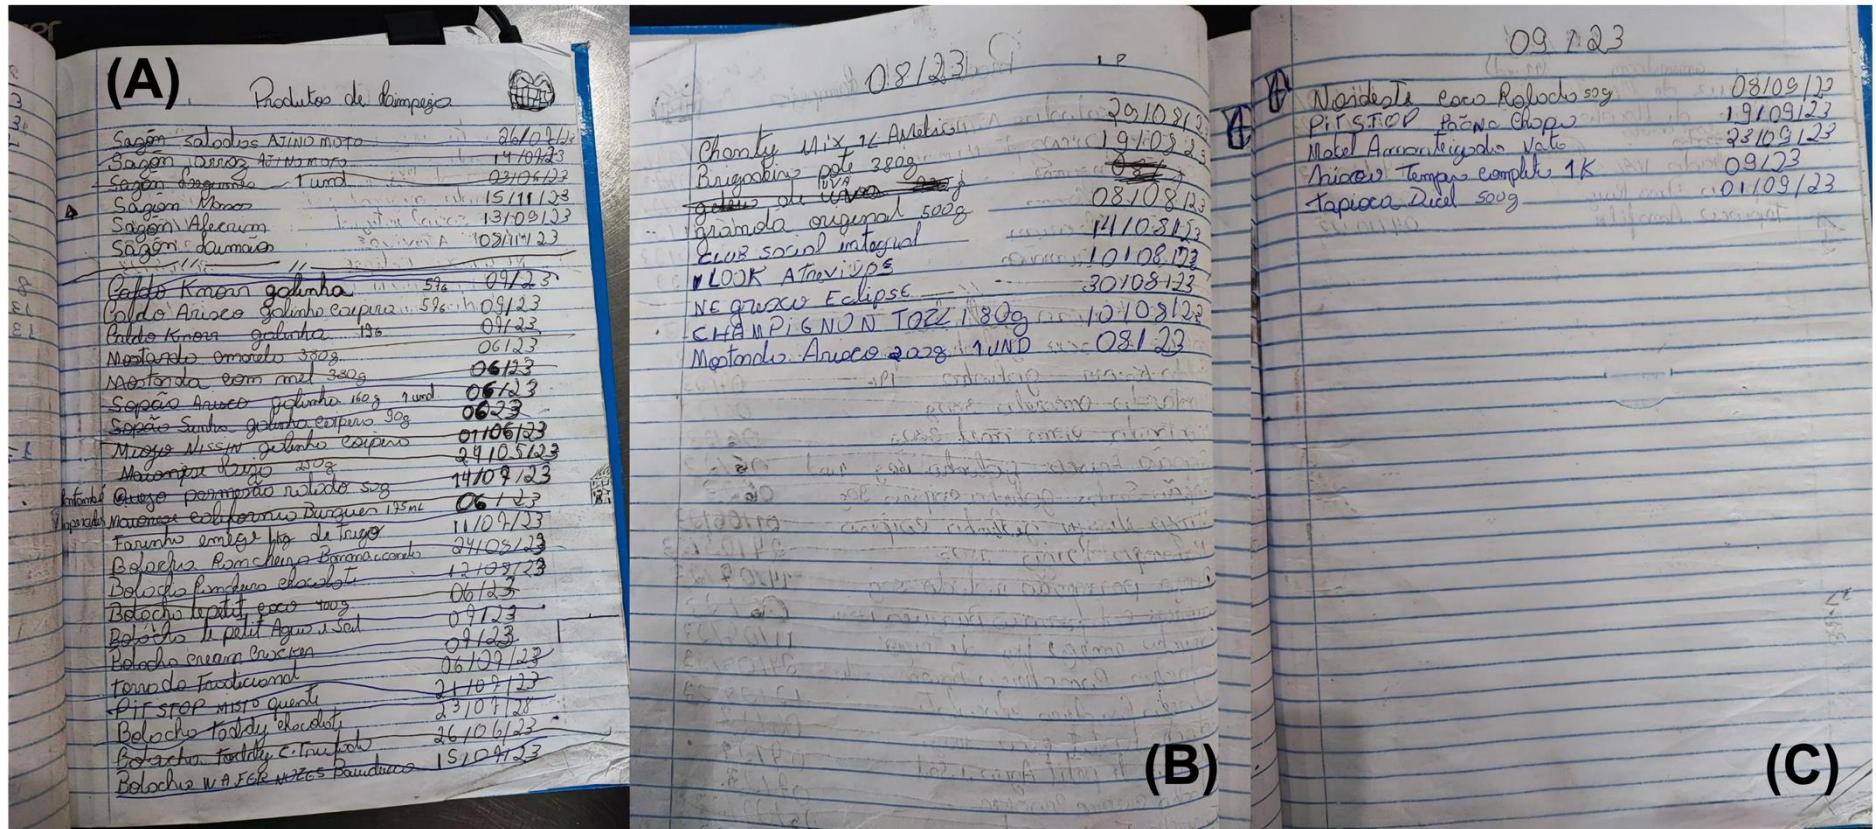 (A)
Produtos de Limpeza
Sazón saladas AJINOMOTO 26/07/23
Sazón arroz AJINOMOTO 14/07/23
Sazón Legumes 1 und 03/06/23
Sazón 15/11/23
Sazón 13/09/23
Sazón 08/11/23
Caldo Knorr galinha 57g 09/23
Caldo Arisco Galinha caipira 57g 09/23
Caldo Knorr galinha 19g 09/23
Mostarda amarela 380g 06/23
Mostarda com mel 380g 06/23
Sopão Arisco galinha 160g 1 und 06/23
Sopão galinha caipira 90g 06/23
Miojo NISSIN galinha caipira 01/06/23
Maionese 250g 24/05/23
Queijo parmesão ralado 50g 14/07/23
Maionese california Burguer 175mL 06/23
Farinha 1kg de Trigo 11/07/23
Bolacha Rancheiro Banana canela 24/08/23
Bolacha chocolate 12/08/23
Bolacha lepetit coco 400g 06/23
Bolacha le petit Agua e Sal 09/23
Bolacha cream Cracker 09/23
Torrada Tradicional 06/07/23
PIT STOP MISTO quente 21/07/23
Bolacha Toddy chocolate 23/07/23
Bolacha Toddy C. Trufado 26/06/23
Bolacha WAFER NOZES Bauducco 15/07/23
(B)
08/23
Chanty Mix 1L Amelia 29/08/23
Brigadeiro pote 380g 19/08/23
de UVA
granola original 500g 08/08/23
CLUB Social integral 14/08/23
LOOK Atrevips 10/08/23
NEgresco Eclipse 30/08/23
CHAMPIGNON TOZZI 80g 10/08/23
Mostarda Arisco 200g 1UND 08/23
(C)
09/23
Nordeste coco Ralado 50g 08/09/23
PIT STOP Chapa 19/09/23
Mabel Amanteigado 23/09/23
Arisco Tempero completo 1K 09/23
Tapioca 500g 01/09/23